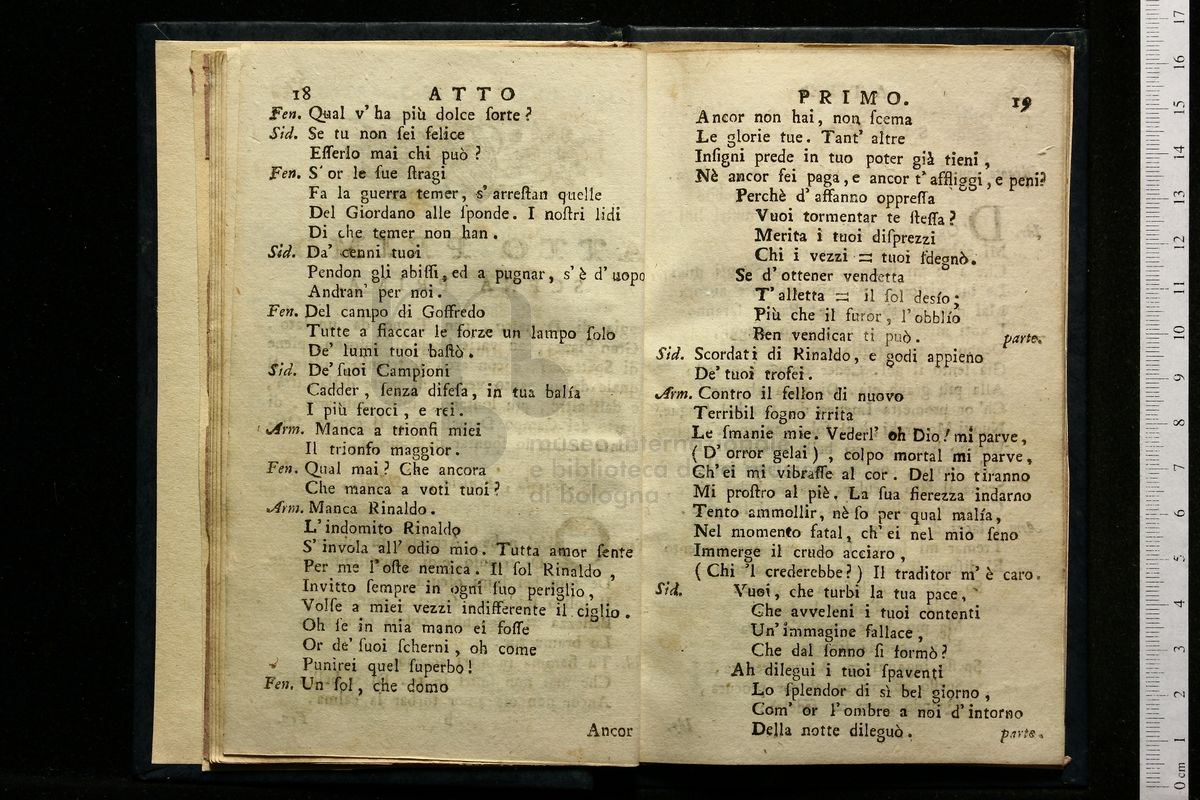 18 ATTO
Fen. Qual v' ha più dolce ſorte?
Sid. Se tu non ſei felice
Eſſerlo mai chi può?
Fen. S' or le ſue ſtragi
Fa la guerra temer, s' arreſtan quelle
Del Giordano alle ſponde. I noſtri lidi
Di che temer non han.
Sid. Da' cenni tuoi
Pendon gli abiſſi, ed a pugnar, s' è d' uopo
Andran' per noi.
Fen. Del campo di Goffredo
Tutte a fiaccar le forze un lampo ſolo
De' lumi tuoi baſtò.
Sid. De' ſuoi Campioni
Cadder, ſenza difeſa, in tua balía
I più feroci, e rei.
Arm. Manca a trionfi miei
Il trionfo maggior.
Fen. Qual mai? Che ancora
Che manca a voti tuoi?
Arm. Manca Rinaldo.
L' indomito Rinaldo
S' invola all' odio mio. Tutta amor ſente
Per me l' oſte nemica. Il ſol Rinaldo,
Invitto ſempre in ogni ſuo periglio,
Volſe a miei vezzi indifferente il ciglio.
Oh ſe in mia mano ei foſſe
Or de' ſuoi ſcherni, oh come
Punirei quel ſuperbo!
Fen. Un ſol, che domo
Ancor
PRIMO. 19
Ancor non hai, non ſcema
Le glorie tue. Tant' altre
Inſigni prede in tuo poter già tieni,
Nè ancor ſei paga, e ancor t' affliggi, e peni?
Perchè d' affanno oppreſſa
Vuoi tormentar te ſteſſa?
Merita i tuoi diſprezzi
Chi i vezzi = tuoi ſdegnò.
Se d' ottener vendetta
T' alletta = il ſol desío;
Più che il furor, l' obblío
Ben vendicar ti può. parte.
Sid. Scordati di Rinaldo, e godi appieno
De' tuoi trofei.
Arm. Contro il fellon di nuovo
Terribil ſogno irrita
Le ſmanie mie. Vederl' oh Dio! mi parve,
( D' orror gelai ), colpo mortal mi parve,
Ch' ei mi vibraſſe al cor. Del rio tiranno
Mi proſtro al piè. La ſua fierezza indarno
Tento ammollir, nè ſo per qual malía,
Nel momento fatal, ch' ei nel mio ſeno
Immerge il crudo acciaro,
( Chi 'l crederebbe? ) Il traditor m' è caro.
Sid. Vuoi, che turbi la tua pace,
Che avveleni i tuoi contenti
Un' immagine fallace,
Che dal ſonno ſi formò?
Ah dilegui i tuoi ſpaventi
Lo ſplendor di sì bel giorno,
Com' or l' ombre a noi d' intorno
Della notte dileguò. parte.
museo internazionale
e biblioteca della
di bologna
0 cm 1 2 3 4 5 6 7 8 9 10 11 12 13 14 15 16 17